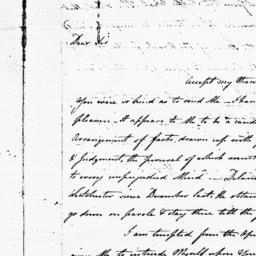 Dear Sir
Accept my than
You were so kind as to send Me. I have
pleasure. It appears to Me to be a candi
Arrangement of facts, drawn up with
& Judgment, the perusal of which must
to every unprejudiced Mind —
since December last, the obtain
go down on parole & stay there till the
I am tempted from the Ope
Me to intrude Myself upon